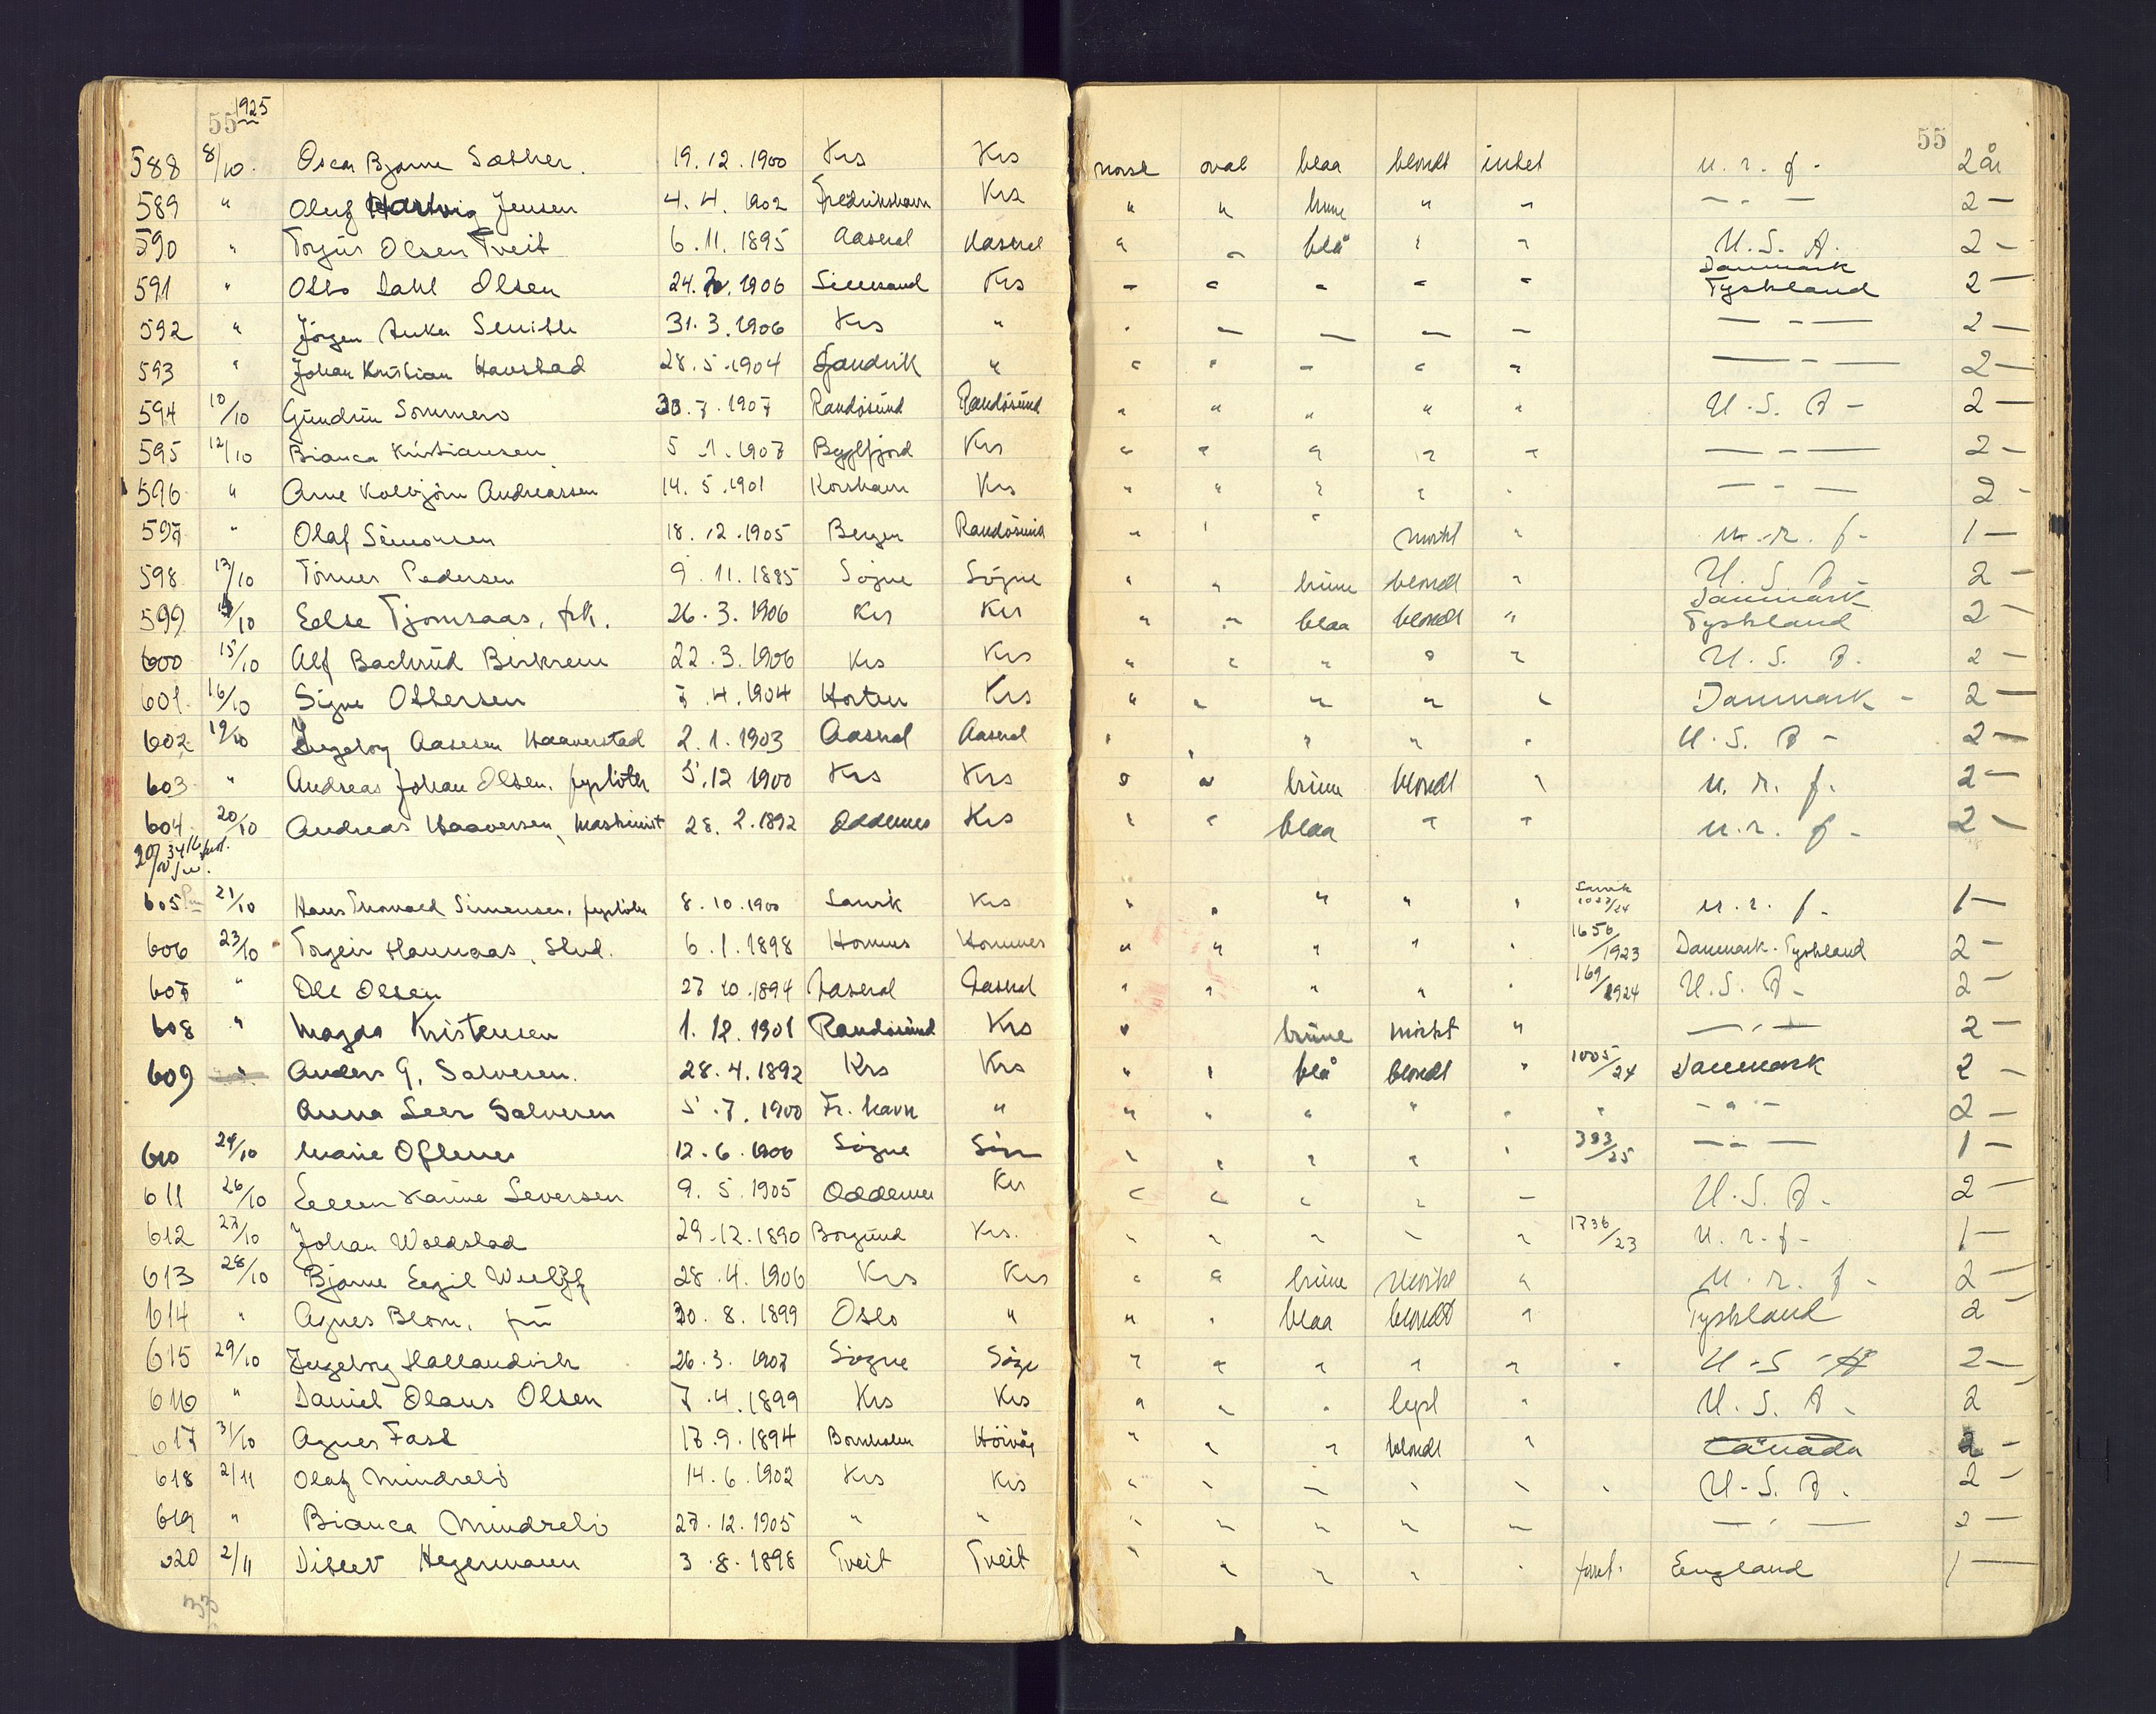 1925
55 55
588 8/10. Oscar Bjarne Sæther. 19.12.1900 Krs Krs norsk oval blaa blondt intet u. r. f. - 2 år
589 " Oluf Hartvig Jensen 4. 4. 1902 Fredrikshavn Krs " " brune " " — " — 2 —
590 " Torjus Olsen Tveit 6. 11. 1895 Aaseral Aaseral " " blå " " U. S. A. 2 -
591 " Otto Dahl Olsen 24. 1906 Krs " " " " " Danmark Tyskland 2 —
592 " Jörgen Anker Smith 31. 3. 1906 Krs " " " " " " — " — 2 —
593 " Johan Kristian 28. 5. 1904 " " " " " " — " — 2 —
594 10/10 Gundrun Sommero 7. 1907 Randösund Randösund " " " " " U. S. A - 2 —
595 12/10 Bianca Kristiansen 5 . 1. 1907 Krs " " " " " — " — 2 -
596 " Arne Kolbjörn Andreassen 14. 5. 1901 Korshavn Krs " " " " " — " — 2 -
597 " Olaf Simonsen 18. 12. 1905 Bergen Randösund " " " mörkt " u. r. f. 1 —
598 13/10 Tönnes Pedersen 9. 11. 1885 Sögne Sögne " " brune blondt " U. S. A. 2 -
599 /10 Else Tjomsaas, frk. 26. 3. 1906 Krs Krs " " blaa blondt " Danmark Tyskland 2 -
600 15/10 Alf Birkrem 22. 3. 1906 Krs Krs " " " " " U. S. A. 2 -
601 16/10 Signe Ottersen 7 . 4. 1904 Horten Krs " " " " " Danmark - 2 —
602 19/10 Ingeborg Aasesen Haaverstad 2. 1. 1903 Aaseral Aaseral " " " " " U. S. A - 2 —
603 " Andreas Johan Olsen. fyrböter 5. 12 1900 Krs Krs " " brune blondt " u. r. f. 2 -
604 20/10 Andreas Haaversen, maskinist 28. 2. 1892 Oddernes Krs " " blaa " " u. r. f - 2 -
605 21/10 Hans Simensen. fyrböter 8. 10. 1900 Krs " " " " " u. r. f. 1 —
606 23/10 Torgeir Hannaas, stud. 6. 1. 1898 Hornnes Hornnes " " " " " 1656/1923 Danmark. Tyskland 2 -
607 " Ole Olsen 27 10. 1894 Aaseral Aaseral " " " " " 169/1924 U. S. A - 2 -
608 " Magda Kristensen 1. 12. 1901 Randösund Krs " brune mörkt " — " — 2 -
609 " Anders G. Salvesen. 28. 4. 1892 Krs Krs " " blå blondt " 1005/24 Danmark 2 -
Anna Salvesen 5. 7. 1900 Fr. havn " " " " " " " - " - 2 —
610 24/10 Marie Oftenes 12. 6. 1900 Sögne " " " " " 383/25 — " — 1 —
611 26/10 Ellen Karine Seversen 9. 5. 1905 Oddernes Krs " " " " " U. S. A. 2 -
612 27/10 Johan Woldstad 29. 12. 1890 Borgund Krs. " " " " " 1736/23 u. r. f - 1 —
613 28/10 Bjarne Egil 28. 4. 1906 Krs Krs " " brune mörkt " u. r. f - 2 -
614 " Agnes Blom, fru 30. 8. 1899 Oslo " " " blaa blondt " Tyskland 2 -
615 29/10 Ingeborg Hallandvik 26. 3. 1907 Sögne " " " " " " U - S - A 2 —
616 " Daniel Olaus Olsen 7 . 4. 1899 Krs Krs " " " lyst " U. S. A. 2 -
617 31/10 Agnes Fast 17. 9. 1894 Bornholm Hövåg " " " blondt " Canada 2 -
618 2/11 Olaf Mindrebö 14. 6. 1902 Krs Krs " " " " " " U. S. A. 2 -
619 " Bianca Mindrebö 27. 12. 1905 " " " " " " " — " — 2 —
620 2/11 Ditlev Hegermann 3 . 8. 1898 Tveit Tveit " " " " " England 1 —